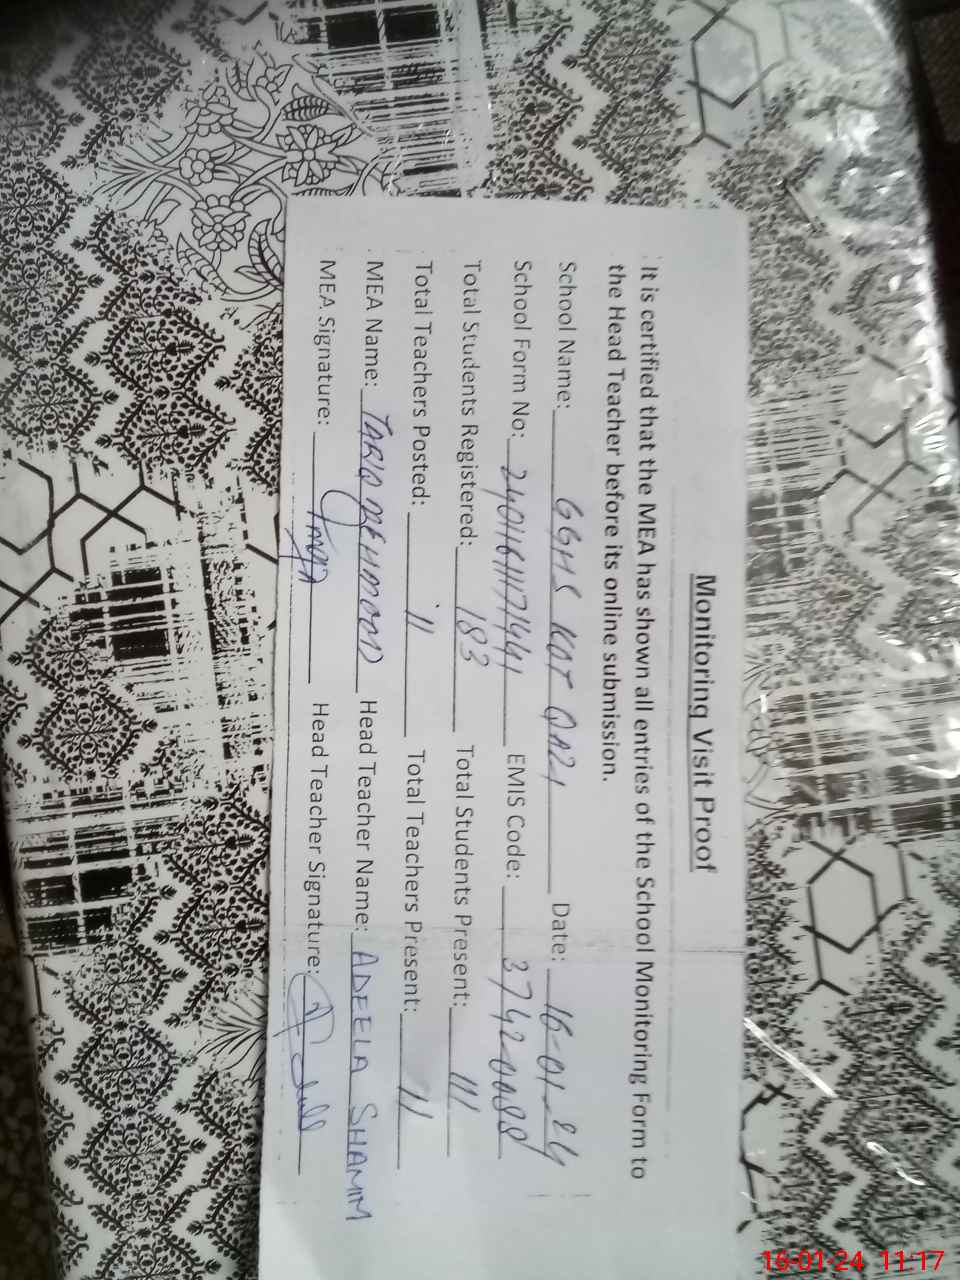 Monitoring Visit Proof
It is certified that the MEA has shown all entries of the School Monitoring Form to
the Head Teacher before its online submission.
School Name: GGHS KOT Date: 16-01-24
School Form No: EMIS Code: 37420088
Total Students Registered: 183 Total Students Present: 111
Total Teachers Posted: 11 Total Teachers Present: 11
MEA Name: TARIQ MEHMOOD Head Teacher Name: ADEELA SHAMIM
MEA Signature: Head Teacher Signature:
16-01-24 11:17